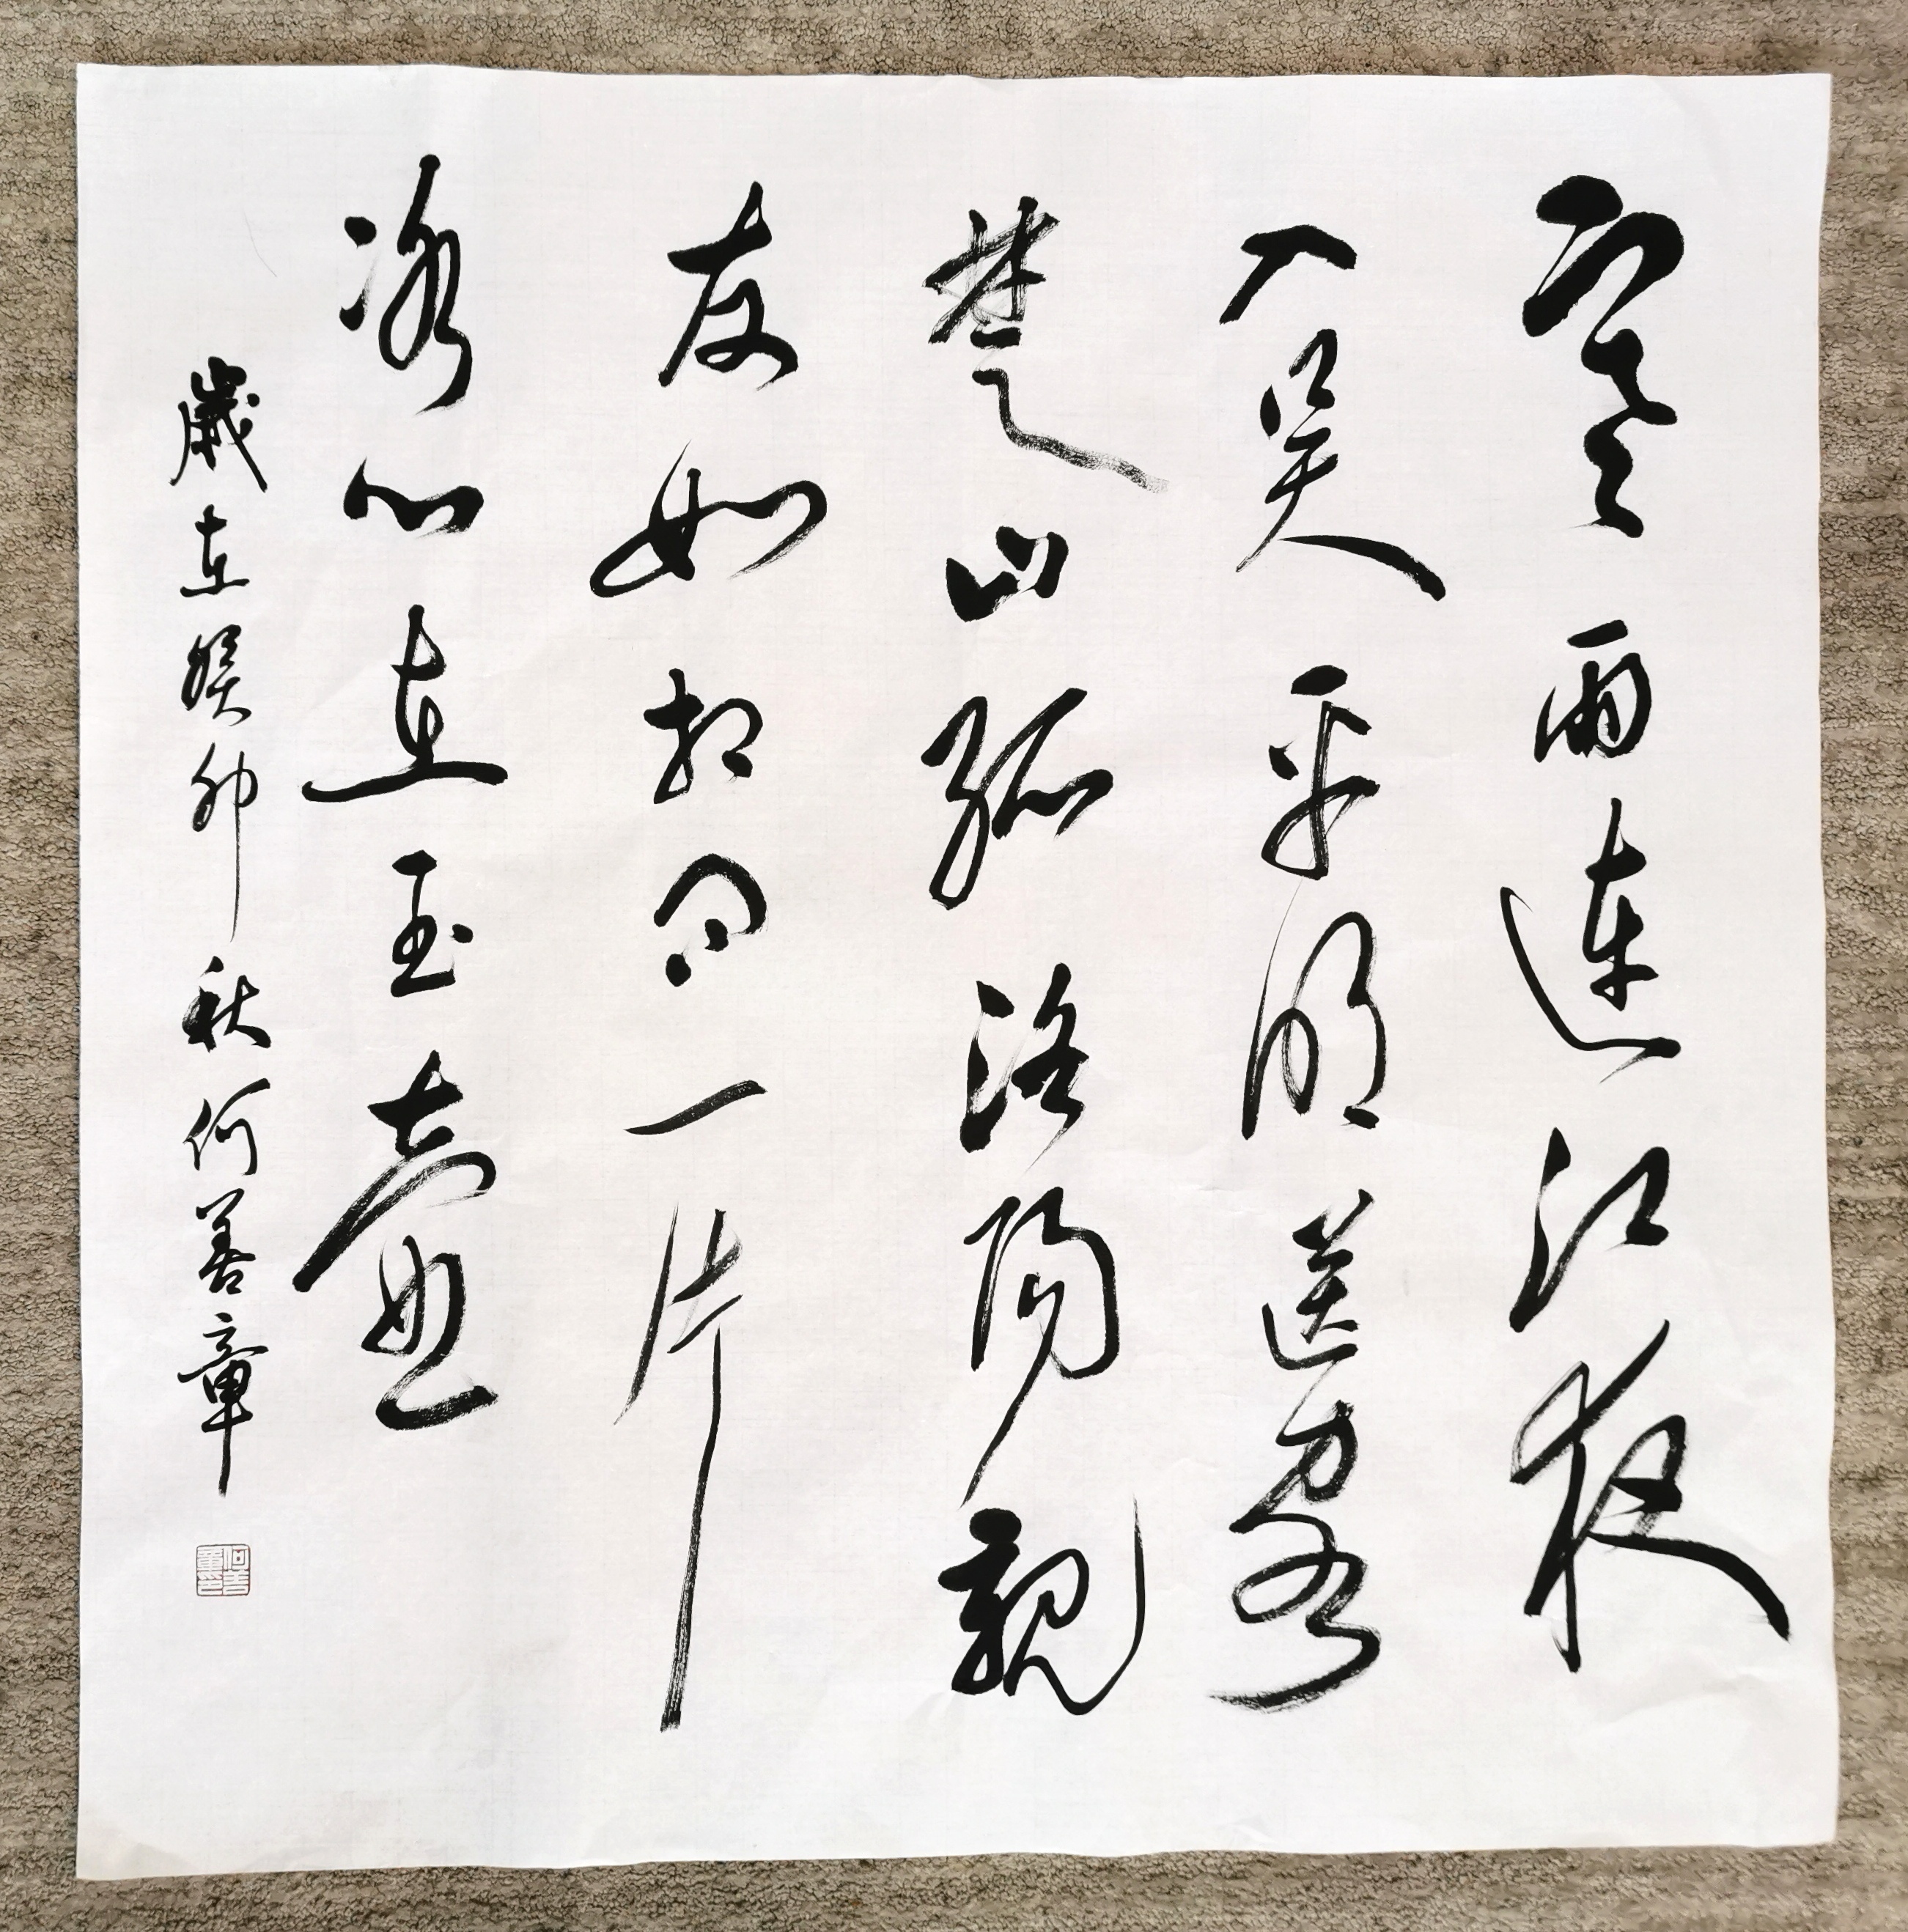 寒雨連江夜
入吴平明送客
楚山孤洛陽親
友如相問一片
冰心在玉壺
歲在癸卯秋何善章
何善章印